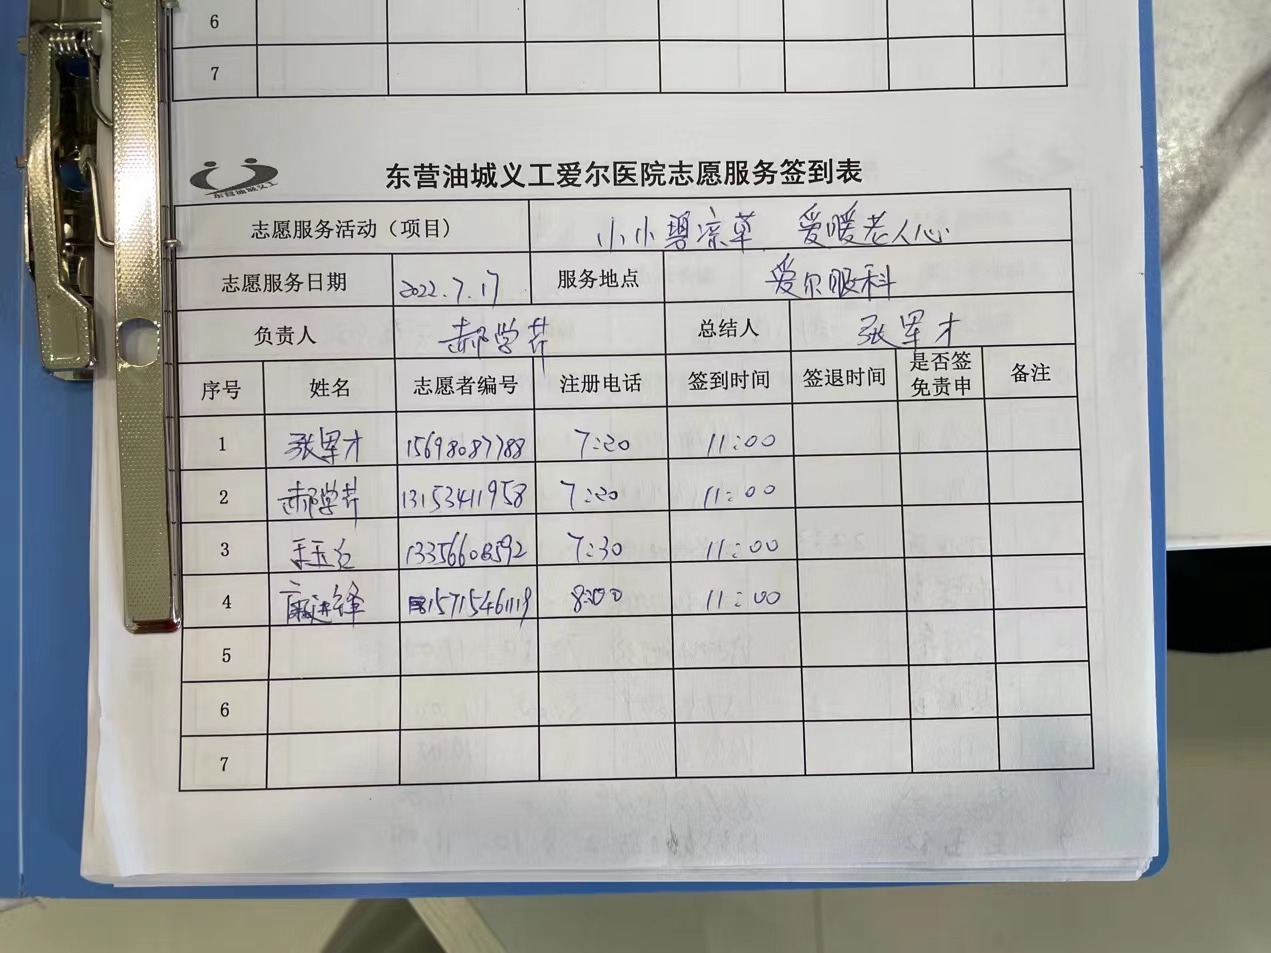 6
7
东营油城义工
东营油城义工爱尔医院志愿服务签到表
志愿服务活动（项目） 小小碧凉草 爱暖老人心
志愿服务日期 2022.7.17 服务地点 爱尔眼科
负责人 郝学芹 总结人 张军才
序号 姓名 志愿者编号 注册电话 签到时间 签退时间 是否签免责申 备注
1 张军才 15698087788 7:20 11:00
2 郝学芹 13153411958 7:20 11:00
3 13356608592 7:30 11:00
4 15715461119 8:00 11:00
5
6
7